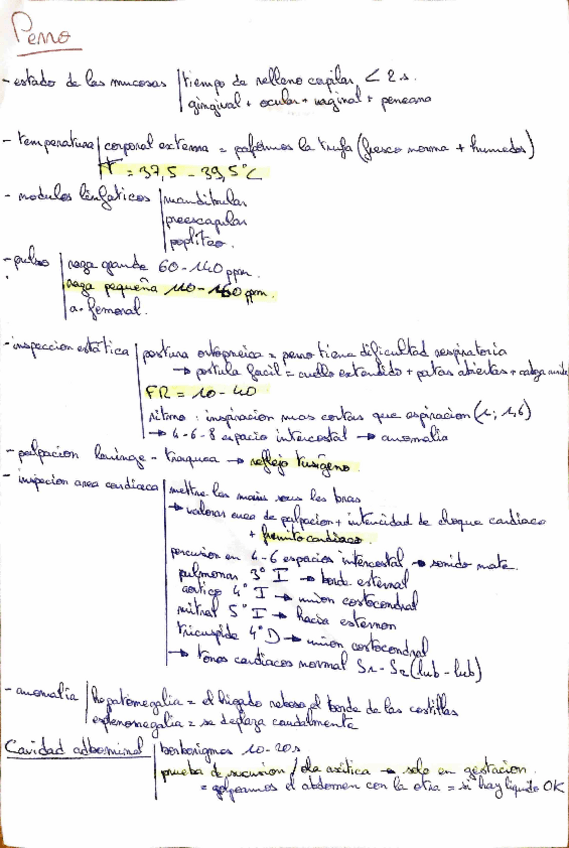 Perro
- estado de las mucosas | tiempo de relleno capilar < 2 s.
gingival + ocular + vaginal + peneana
- temperatura | corporal externa = palpamos la trufa (fresco norma + humedos)
T = 37,5 - 39,5°C
- nodulos linfaticos | mandibular
preescapular
popliteo.
- pulso | raza grande 60 - 140 ppm.
raza pequeña 110 - 160 ppm.
a. femoral.
- inspeccion estática | postura ortopneica = perro tiene dificultad respiratoria
→ postula facil = cuello extendido + patas abiertas + cabeza
FR = 10 - 40
ritmo : inspiracion mas cortas que espiracion (1 ; 1,6)
→ 4 - 6 - 8 espacio intercostal → anomalia
- palpacion laringe - traquea → reflejo tusígeno.
- inspecion area cardiaca | mettre les mains sous les bras
→ valorar area de palpacion + intencidad de choque cardiaco
+ fremito cardiaco.
percusion en 4 - 6 espacios intercostal → sonido mate.
pulmonar 3° I → borde esternal
aortico 4° I → union costocondral
mitral 5° I → hacia esternon
tricuspide 4° D → union costocondral
→ tonos cardiacos normal S1 - S2 (lub - lub)
- anomalia | hepatomegalia = el higado rebosa el borde de las costillas
esplenomegalia = se deplaza caudalmente
Cavidad adbominal | borborigmos 10 - 20s
prueba de sucusion / ola ascitica → solo en gestacion.
= golpeamos el abdomen con la otra = si hay liquido OK